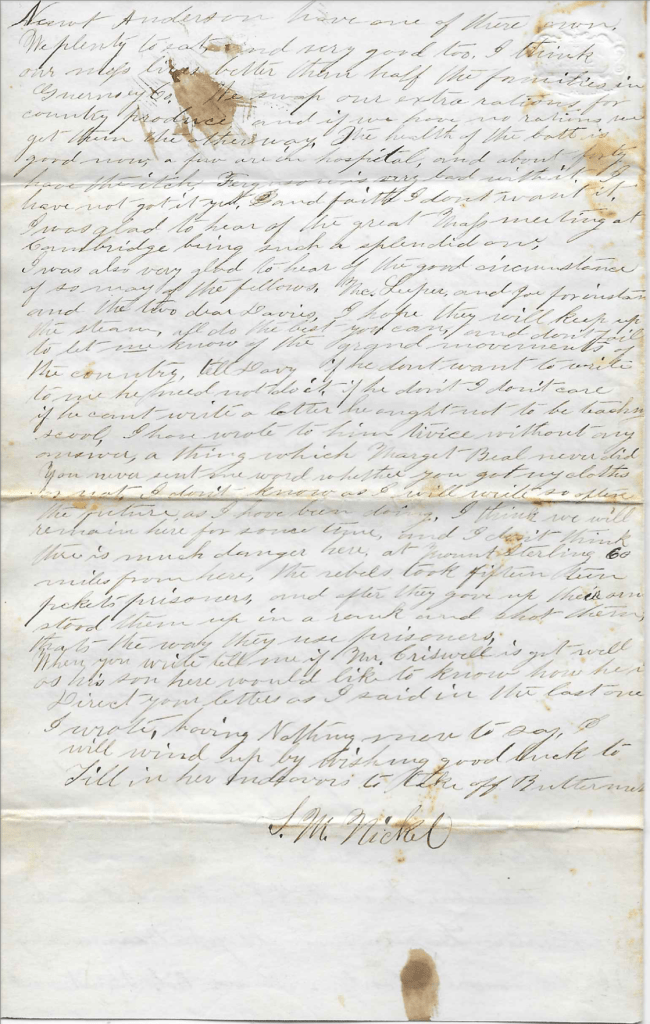 Newt Anderson have one of there own.
We plenty to eat, and very good too, I think
our mess lives better then half the families in
Guernsey Co. We swap our extra rations for
country produce and if we have no rations we
get them the other way. The health of the batt is
good now, a few are in hospital, and about forty
have the itch, is very bad with it. I
have not got it yet, and faith I dont want it.
I was glad to hear of the great Mass meeting at
Cambridge being such a splendid one,
I was also very glad to hear of the good circumstance
of so many of the fellows, Mc. Leeper, and Joe for instan
and the two dear Davies, I hope they will keep up
the steam, all do the best you can, and dont fail
to let me know of the grand movements of
the country, tell Davy if he dont want to write
to me he need not do it. if he don't I don't care
if he cant write a letter he ought not to be teachn
scool, I have wrote to him twice without any
answer, a thing which Marget Beal never did
You never sent me word whether you got my clothes
or not, I don't know as I will write so often
the future as I have been doing. I think we will
remain here for some time, and I don't think
there is much danger here, at Mount Sterling 60
miles from here, the rebels took fifteen teen
pickets prisoners, and after they gave up their arm
stood them up in a rank and shot them,
thats the way they use prisoners.
When you write tell me if Mr. Criswell is got well
as his son here would like to know how he is
Direct your letters as I said in the last one
I wrote, having Nothing more to say, I
will wind up by wishing good luck to
Till in her endeavors to take off
S. M. Nickel